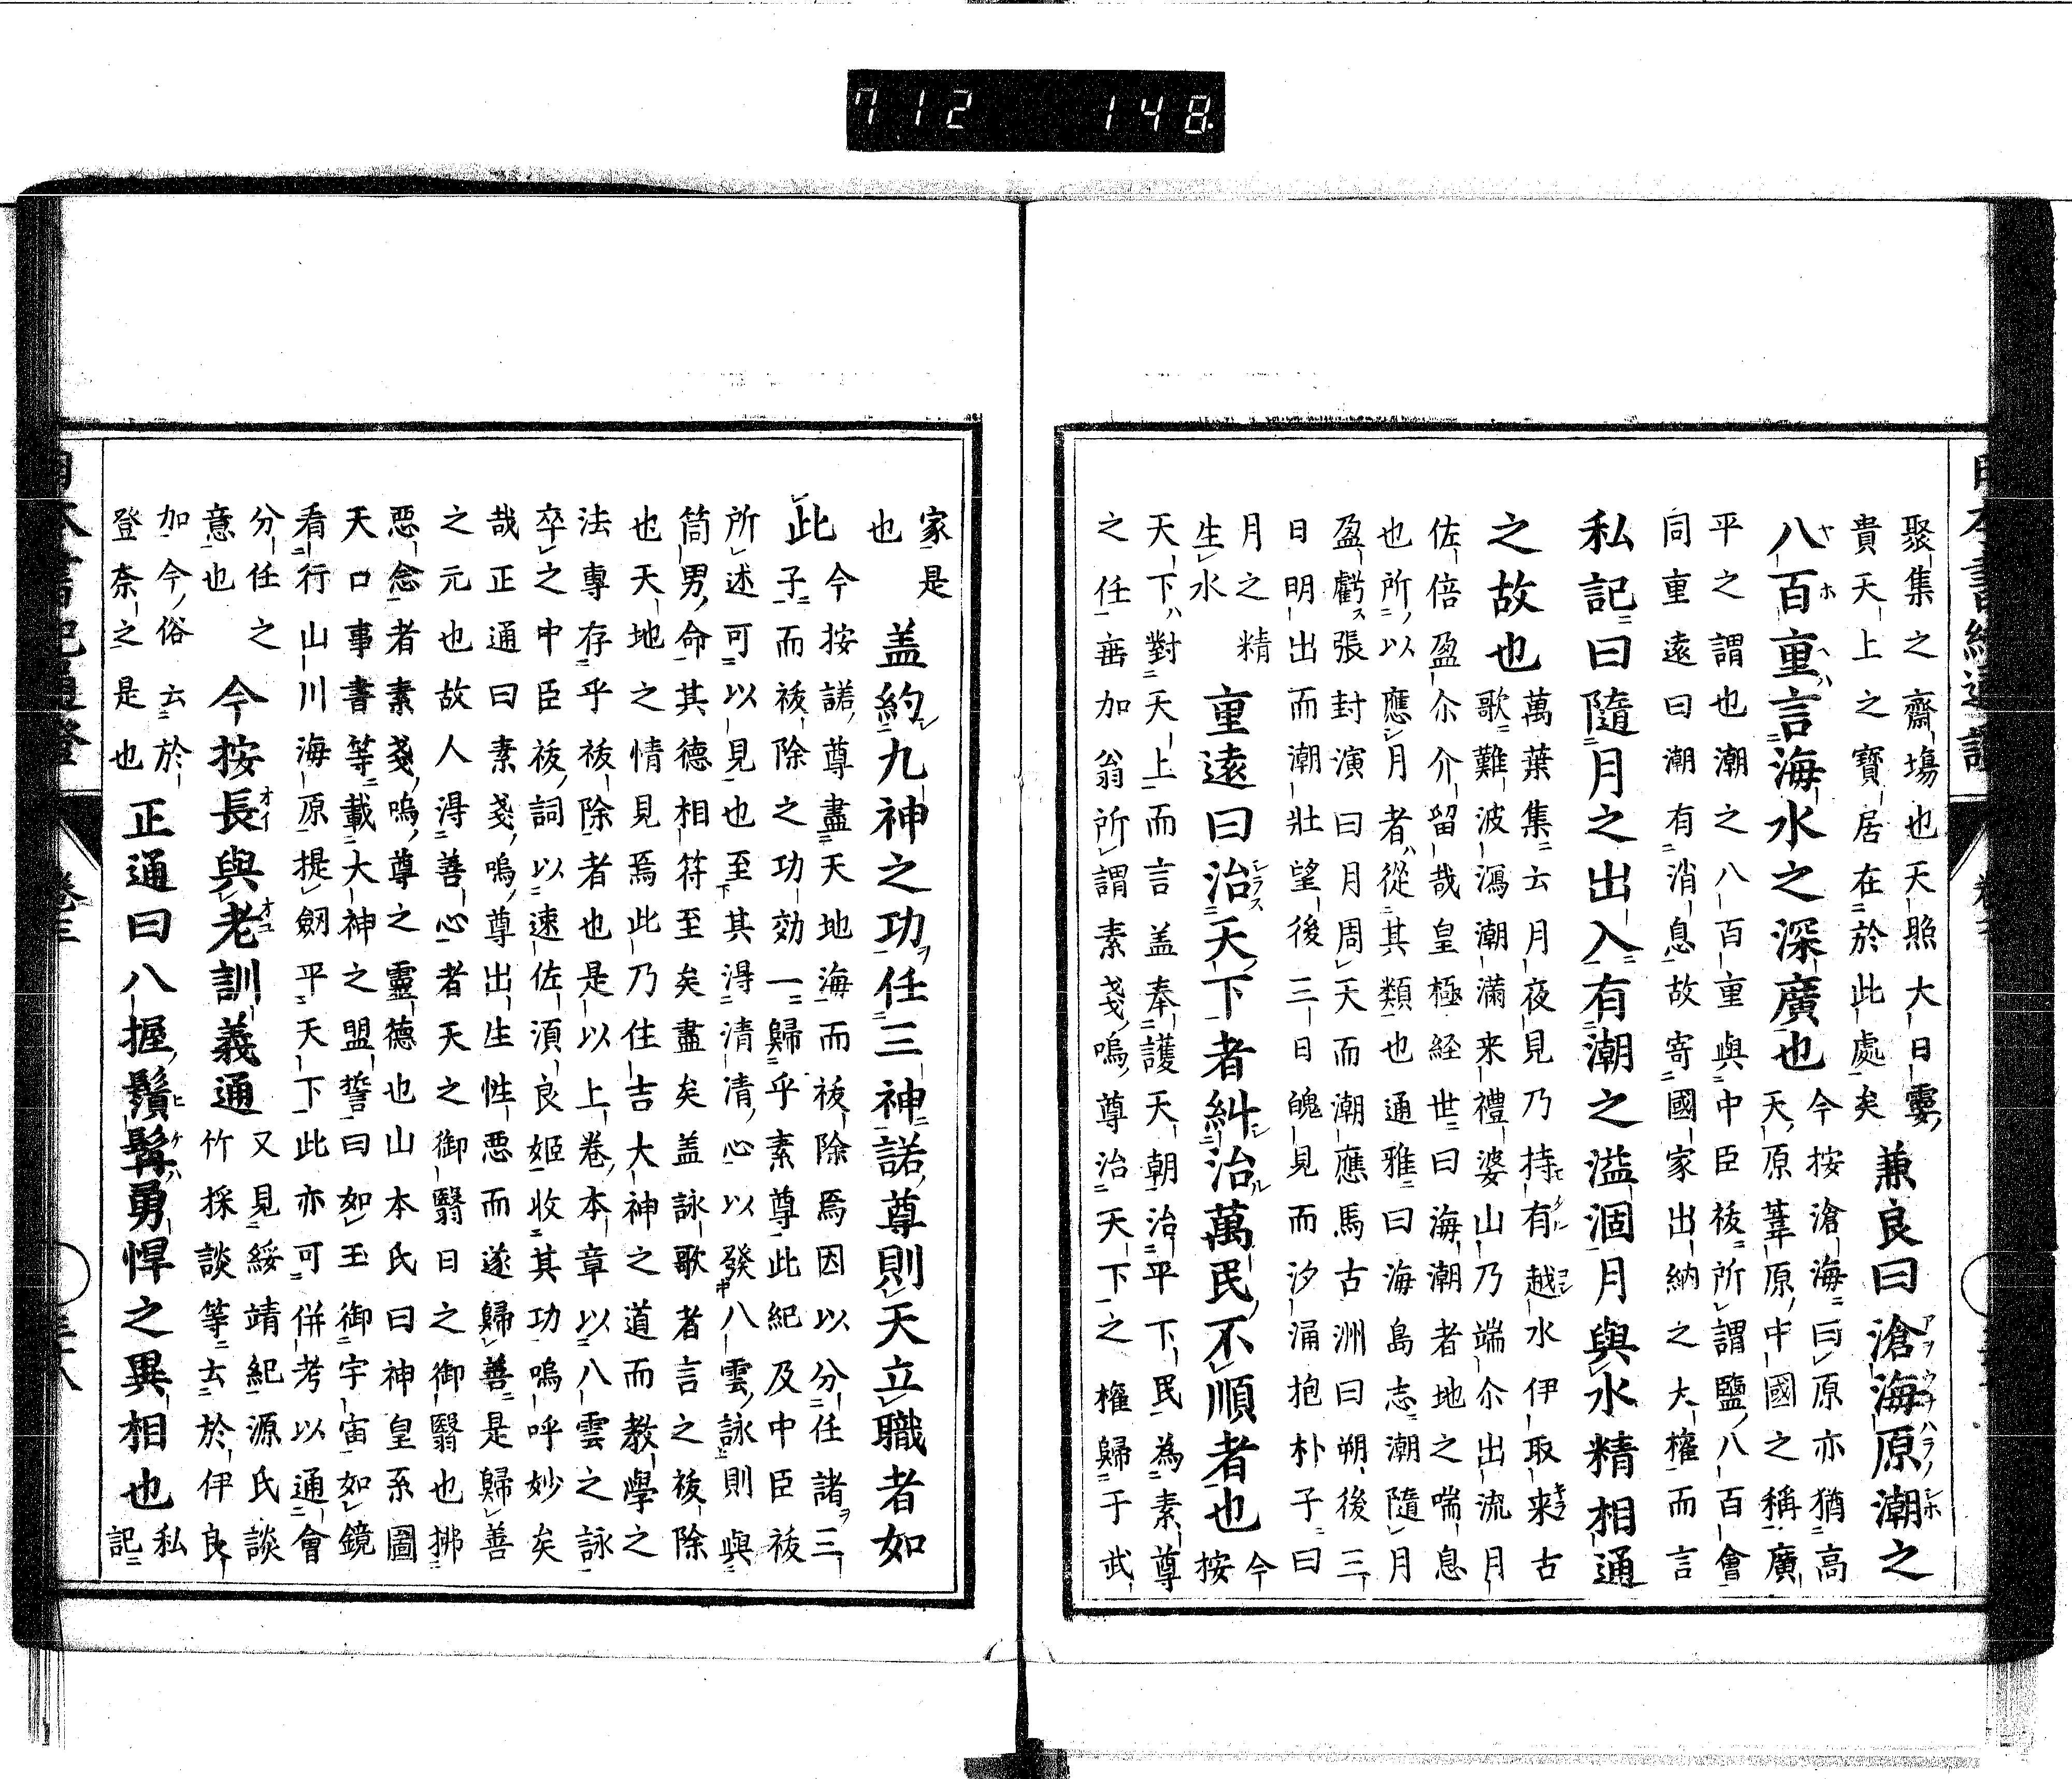 聚集之齋場也天照大日孁
貴天上之寶居在於此處矣
兼良曰滄海原潮之
八百重言海水之深廣也
今按滄海曰原亦猶高
天原葦原中國之稱廣
平之謂也潮之八百重與中臣祓所謂鹽八百會
同重遠曰潮有消息故寄國家出納之大權而言
私記曰隨月之出入有潮之溢涸月與水精相通
之故也
萬葉集云月夜見乃持有越水伊取来古
歌難波潟潮滿来禮婆山乃端尒出流月
佐倍盈尒介留哉皇極経世曰海潮者地之喘息
也所以應月者從其類也通雅曰海島志潮隨月
盈虧張封演曰月周天而潮應馬古洲曰朔後三
日明出而潮壯望後三日魄見而汐涌抱朴子曰
月之精
生水
重遠曰治天下者糾治萬民不順者也
今
按
天下對天上而言盖奉護天朝治平下民為素尊
之任垂加翁所謂素戔嗚尊治天下之權歸于武
家是
也
盖約九神之功任三神諾尊則天立職者如
此
今按諾尊盡天地海而祓除焉因以分任諸三
子而祓除之功効一歸乎素尊此紀及中臣祓
所述可以見也至其淂清清心以發八雲詠則與
筒男命其德相符至矣盡矣盖詠歌者言之祓除
也天地之情見焉此乃住吉大神之道而教學之
法專存乎祓除者也是以上卷本章以八雲之詠
卒之中臣祓詞以速佐須良姫收其功嗚呼妙矣
哉正通曰素戔嗚尊出生性悪而遂歸善是歸善
之元也故人淂善心者天之御翳日之御翳也拂
惡念者素戔嗚尊之靈德也山本氏曰神皇系圖
天口事書等載大神之盟誓曰如玉御宇宙如鏡
看行山川海原提劔平天下此亦可併考以通會
分任之
意也
今按長與老訓義通
又見綏靖紀源氏談
竹採談等云於伊良
加今俗云於
登奈之是也
正通曰八握鬚髯勇悍之異相也
私
記
712 148